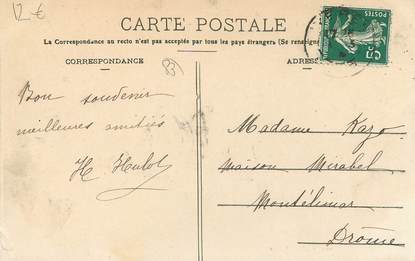 12 €
CARTE POSTALE
La Correspondance au recto n'est pas acceptée par tous les pays étrangers (Se renseigner
CORRESPONDANCE
83
ADRESSE
POSTES
5c
Bon souvenir
meilleures amitiés
H Hulot
Madame Kazo
maison Mirabel
Montélimar
Drôme